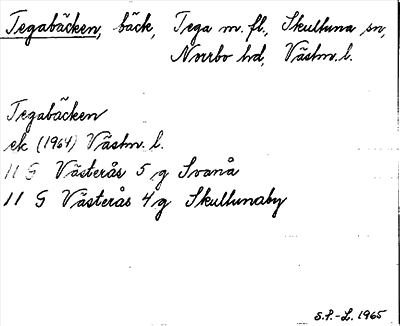 Tegabäcken, bäck, Tega m. fl., Skultuna sn,
Norrbo hd, Västm. l.
Tegabäcken
ek (1964) Västm. l.
11 G Västerås 5 g Svanå
11 G Västerås 4 g Skultunaby
S.P.-L. 1965